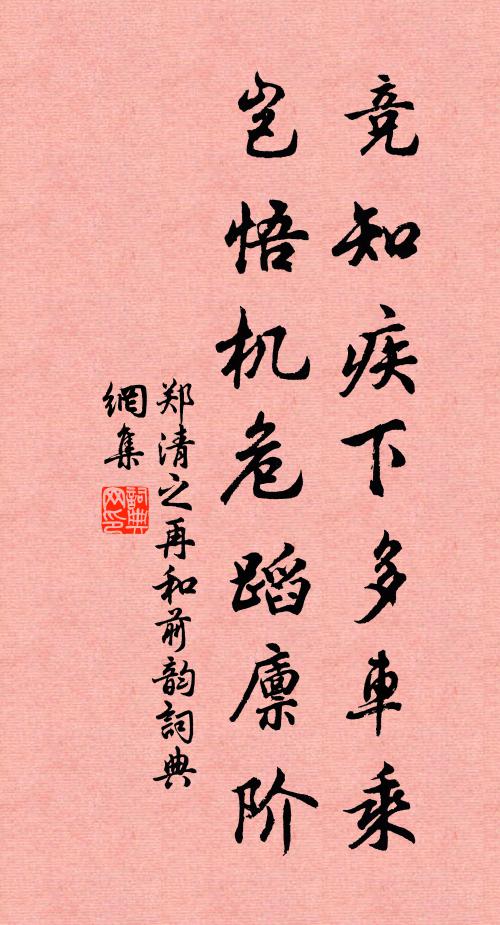 竞知疾下多车乘
岂悟机危蹈廪阶
郑清之再和前韵词典
網集
詞典
网印